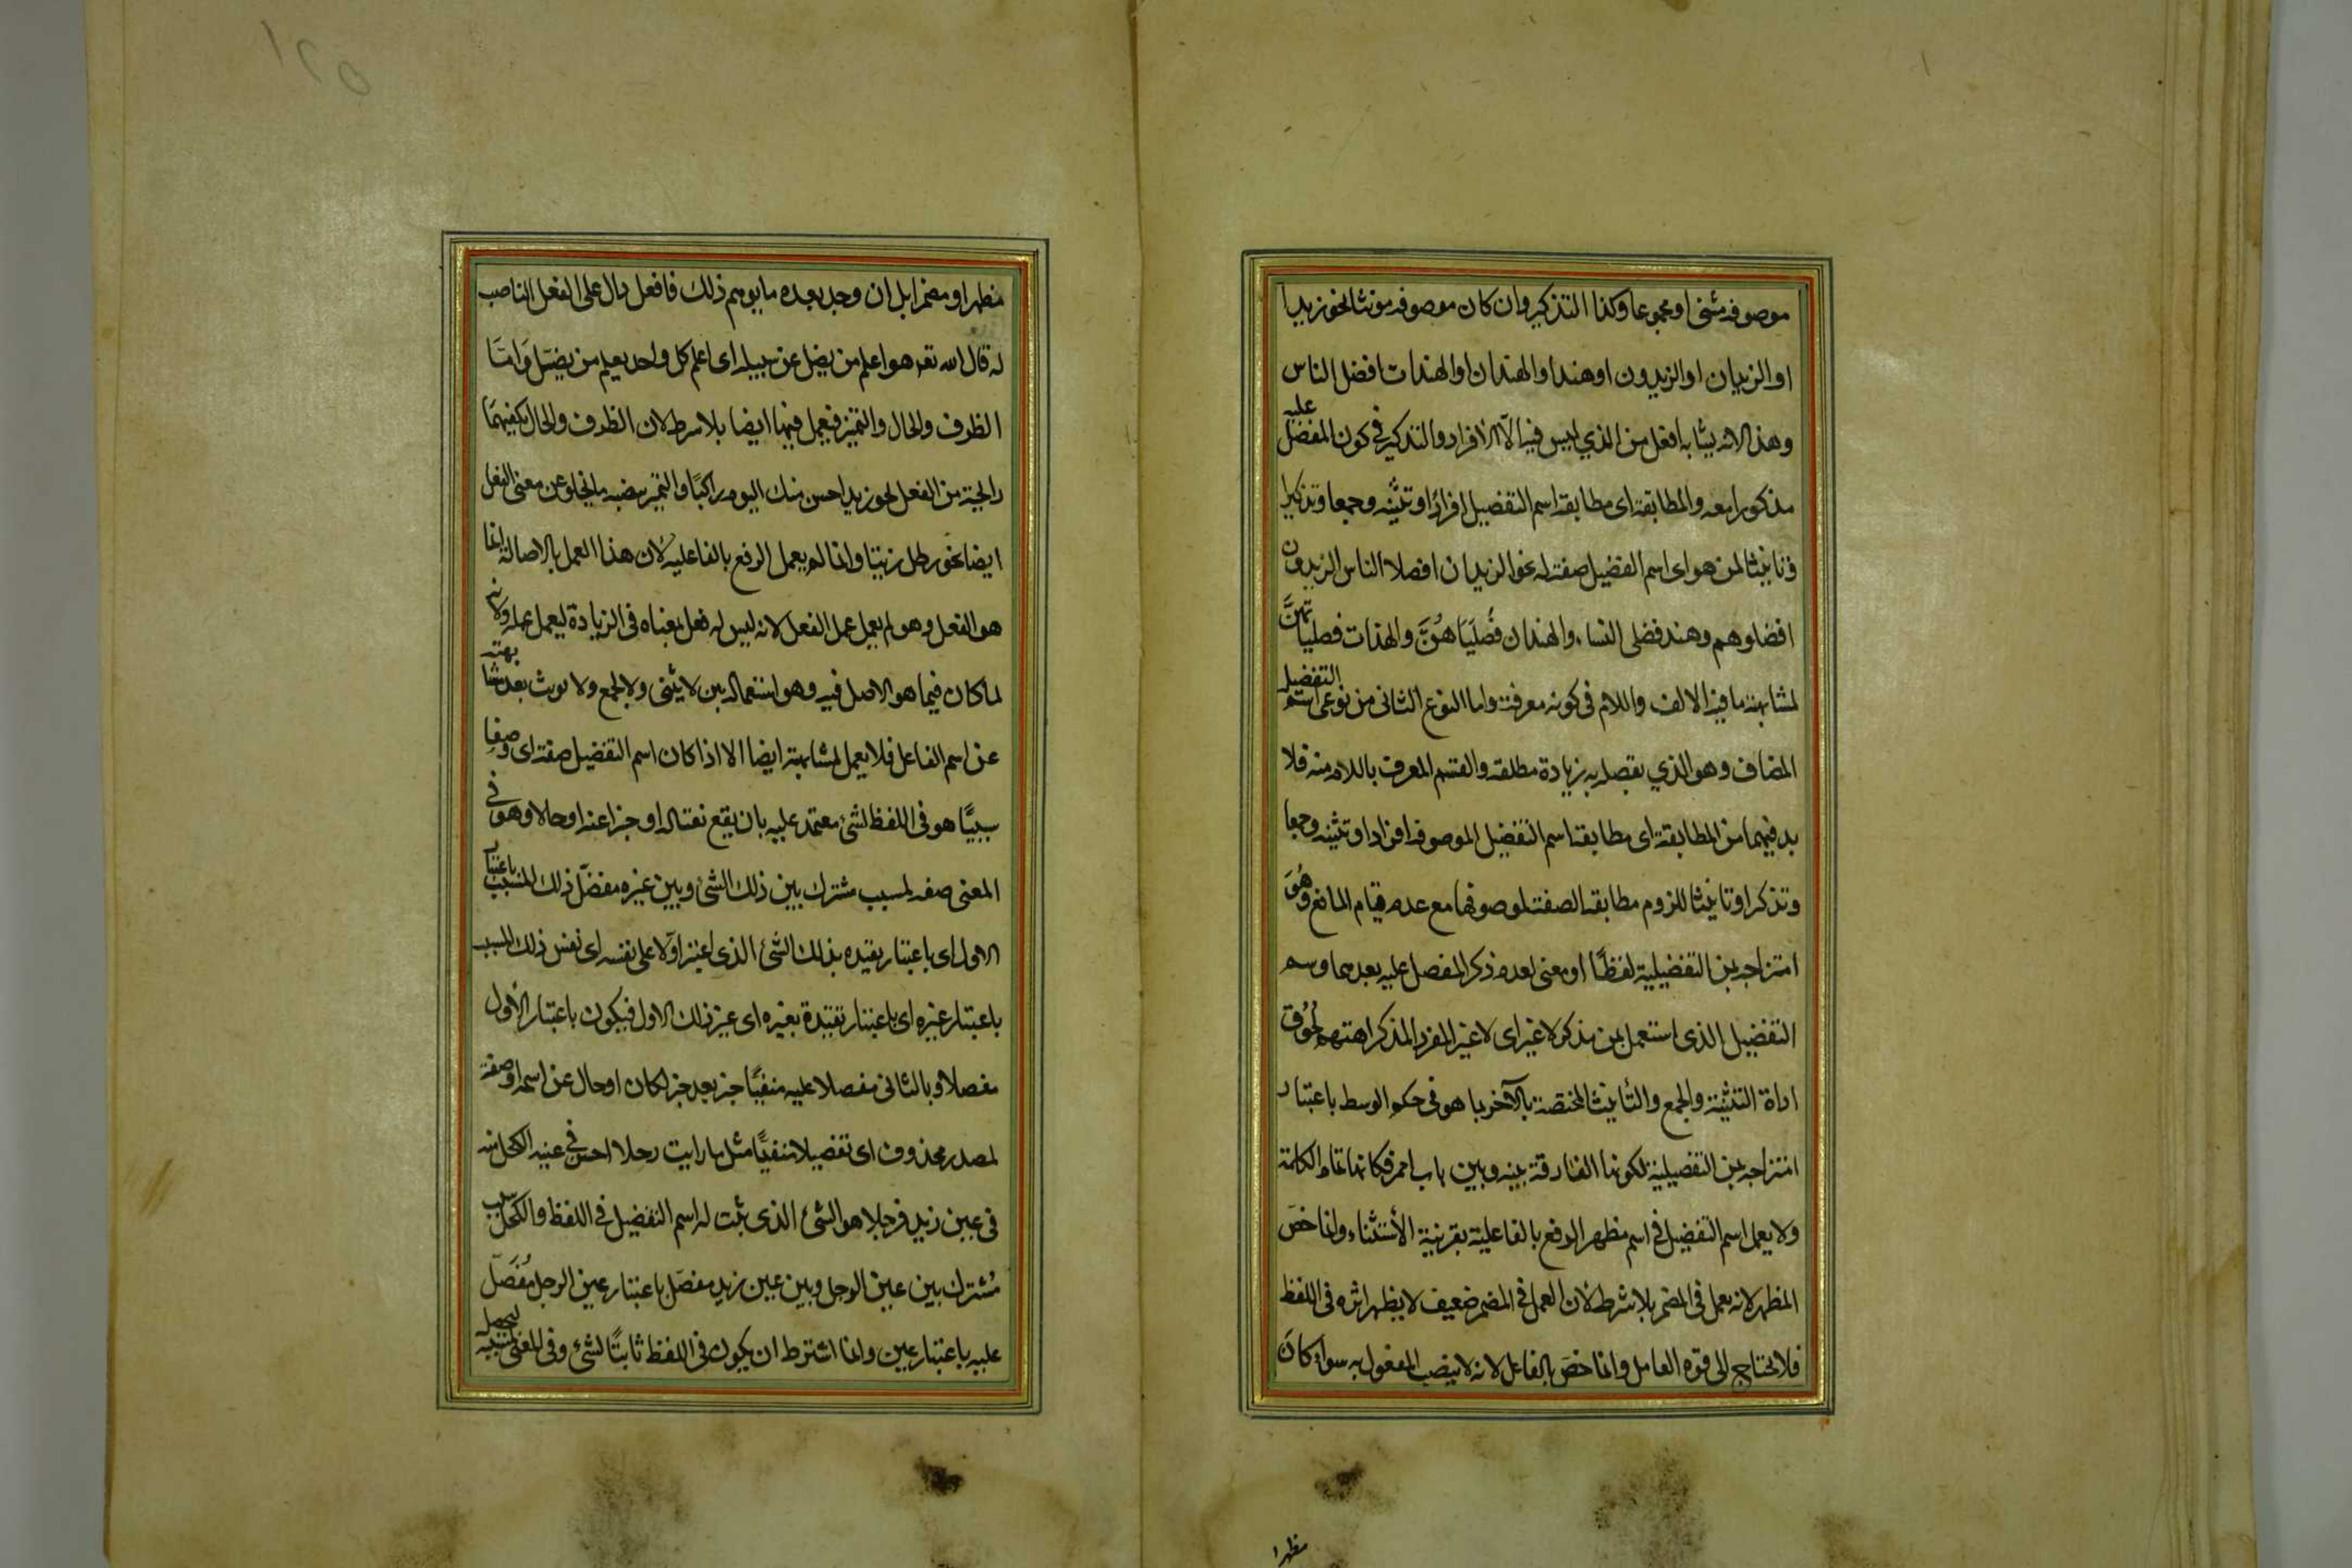 موصوفه مثنى او مجموعا وكذا التذكير وان كان موصوفه مونثا نحو زيدا
او الزيدان او الزيدون او هندا والهندان او الهندات افضل الناس
وهذا لانه يشابه افعل من الذي ليس فيه الا الافراد والتذكير في كون المفضل عليه
مذكورا معه والمطابقة اى مطابقة اسم التفضيل افرادا وتثنيه وجمعا وتذكيرا
وتانيثا لمن هو اى اسم التفضيل صفة له نحو الزيدان افضلا الناس الزيدون
افضلوهم وهند فضلى النساء والهندان فُضلَيَا هُنَّ والهندات فضلياتهنَّ
لمشابهة ما فيه الالف واللام فى كونه معرفة واما النوع الثانى من نوعى اسم التفضيل
المضاف وهو الذي يقصد به زيادة مطلقة والقسم المعرف باللام منه فلا
بد فيهما من المطابقة اى مطابقة اسم التفضيل لموصوفه افرادا وتثنيه وجمعا
وتذكرا وتانيثا للزوم مطابقة الصفة لموصوفها مع عدم قيام المانع وهُوَ
امتزاجه بمن التفضيلية لفظًا او معنى لعدم ذكر المفضل عليه بعدهما وسم
التفضيل الذى استعمل بمن مذكر لا غير اى لا غير المفرد المذكر لحُوُق
اداة التثنية والجمع والتأنيث المختصة بالآخر بما هو فى حكم الوسط باعتبار
امتزاجه بمن التفضيلية لكونها الفارقة بينه وبين باب احمر فكانها تمام الكلمة
ولا يعمل اسم التفضيل فى اسم مظهر الرفع بالفاعلية بقرينة الأستثناء وانما خصّ
المظهر لانه يعمل فى المضمر بلا شرط لان العمل فى المضمر ضعيف لا يظهر اثره فى اللفظ
فلا يحتاج الى قوه العامل وانما خصّ بالفاعل لانه لا ينصب المفعول به سواء كان
مظهرا
مظهرا او مضمرا بل ان وجد بعده ما يوهم ذلك فافعل دال على الفعل الناصب
له قال الله تعه هو اعلم من يضل عن سبيله اى اعلم كل واحد يعلم من يضل وَامّا
الظرف والحال والتميز فيعمل فيها ايضا بلا شرط لان الظرف والحال يكفيهما
رايحة من الفعل نحو زيد احسن منك اليوم راكبًا والتميز ينصبه ما يخلو عن معنى الفعل
ايضا نحو رطل زيتا وانما لم يعمل الرفع بالفاعلية لان هذا العمل بالاصالة انما
هو الفعل وهو لم يعمل عمل الفعل لانه ليس له فعل بمعناه فى الزيادة ليعمل عمله ولانه
لما كان فيما هو الاصل فيه وهو استعماله بمن لا يثنى ولا يجمع ولا يونث بعد مشابهته
عن اسم الفاعل فلا يعمل لمشابهته ايضا الا اذا كان اسم التفضيل صفة اى وصفا
سببيًّا هو فى اللفظ لشئ معتمد عليه بان يقع نعتا له او خبرا عنه او حالا وهو فى
المعنى صفه لمسبب مشترك بين ذلك الشئ وبين غيره مفضّل ذلك المسبب باعتبار
الاول اى باعتبار تقيده بذلك الشئ الذى اعتبر اوّلا على نفسه اى نفس ذلك المسبب
باعتبار غيره اى باعتبار تقيده بغيره اى غير ذلك الاول فيكون باعتبار الأول
مفضلا وبالثانى مفضلا عليه منفيًّا خبر بعد خبر لكان او حال عن اسمه او صفة
لمصدر محذوف اى تفضيلا منفيًّا مثل ما رايت رجلا احسن فى عينه الكحل منه
فى عين زيد فرجلا هو الشئ الذى ثبت له اسم التفضيل فى اللفظ والكحل مسبب
مُشترك بين عين الرجل وبين عين زيد مفضّل باعتبار عين الرجل مُفَضّل
عليه باعتبار عين وانما اشترط ان يكون فى اللفظ ثابتًا لشئ وفى المعنى لمسببه ليحصل